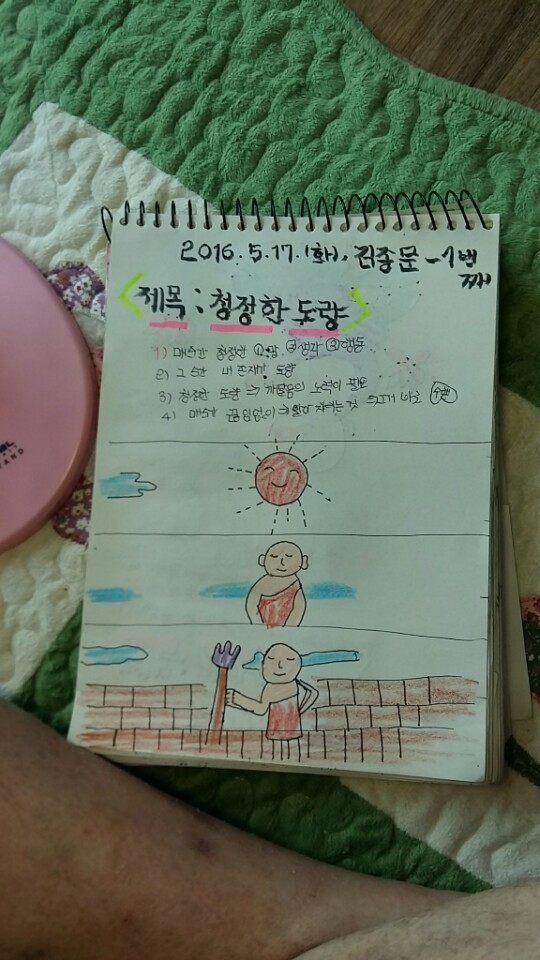 2016.5.17.(화). 김종문 - 1번
째
<제목 : 청정한 도량>
1) 매순간 청정한 ①말 ②생각 ③행동
2) 그 순간 내 존재가 도량
3) 청정한 도량 ⇒ 깨달음의 노력이 필요
4) 매순간 끊임없이 ⇒ 알아 차리는 것 바로 수행